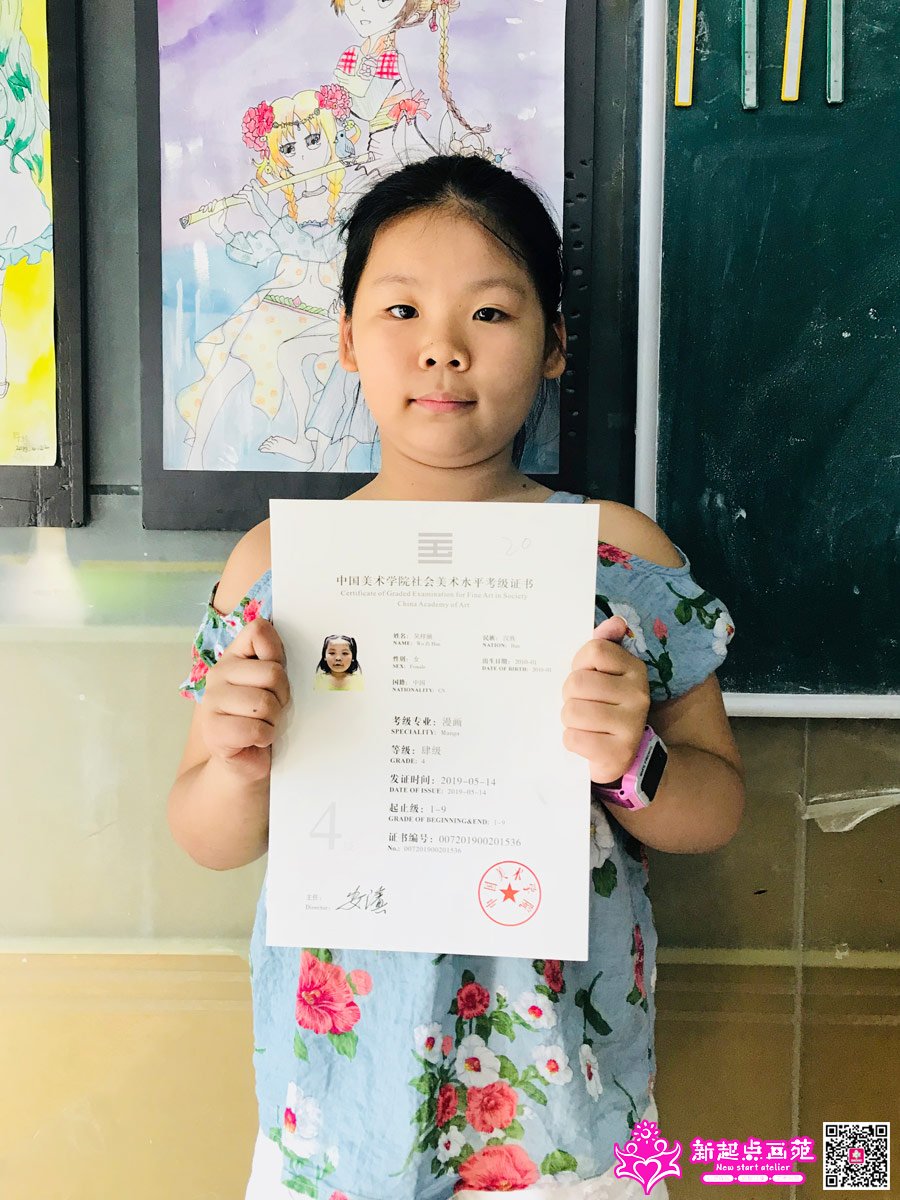 20
中国美术学院社会美术水平考级证书
Certificate of Graded Examination for Fine Art in Society
China Academy of Art
姓名： 民族：汉族
NAME: NATION: Han
性别：女 出生日期：2010-01
SEX: Female DATE OF BIRTH: 2010-01
国籍：中国
NATIONALITY: CN
考级专业：漫画
SPECIALITY: Manga
等级：肆级
GRADE: 4
发证时间：2019-05-14
DATE OF ISSUE: 2019-05-14
起止级：1-9
GRADE OF BEGINNING&END: 1-9
证书编号：007201900201536
No.: 007201900201536
4级
主任：
Director:
中国美术学院
新起点画苑
New start atelier